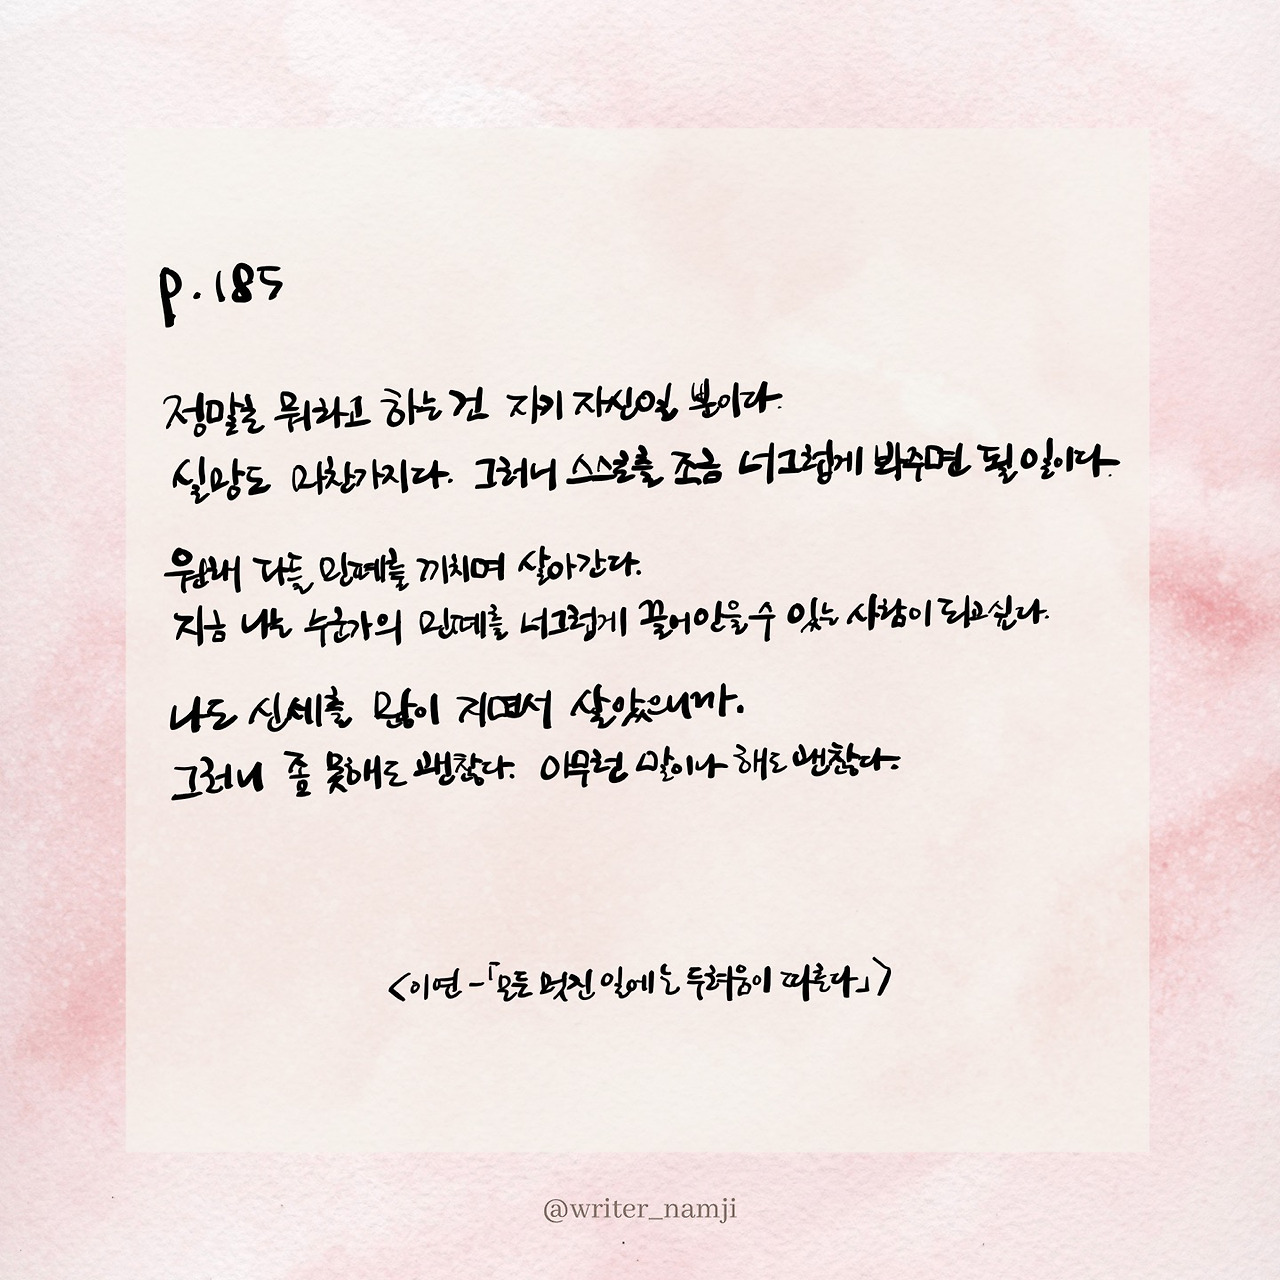 p.185
정말로 뭐라고 하는 건 자기 자신일 뿐이다.
실망도 마찬가지다. 그러니 스스로를 조금 너그럽게 봐주면 될 일이다.
원래 다들 민폐를 끼치며 살아간다.
지금 나는 누군가의 민폐를 너그럽게 끌어안을 수 있는 사람이 되고 싶다.
나도 신세를 많이 지면서 살았으니까.
그러니 좀 못해도 괜찮다. 아무런 말이나 해도 괜찮다.
<이연 -「모든 멋진 일에는 두려움이 따른다」>
@writer_namji